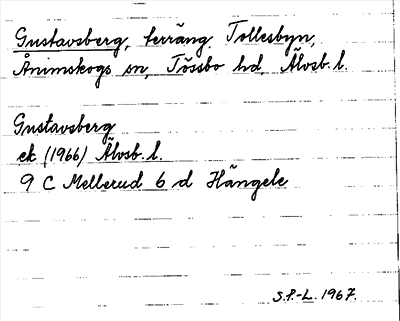 Gustavsberg, terräng. Tollesbyn,
Ånimskogs sn, Tössbo hd, Älvsb. l.
Gustavsberg
ek (1966) Älvsb. l.
9 C Mellerud 6 d Hängele
S.P.-L. 1967.